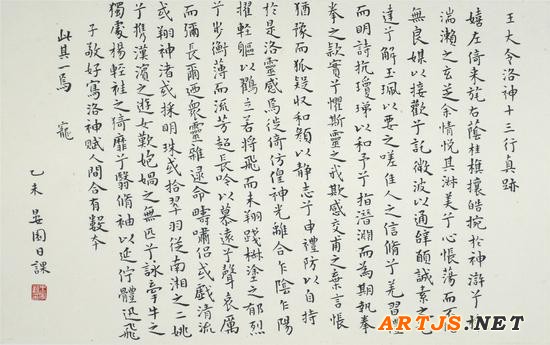 王大令洛神十三行真跡
嬉左倚采旄右蔭桂旗攘皓捥於神滸兮採
湍瀨之玄芝余情悅其淋美兮心振蕩而不
無良媒以接歡兮託微波以通辭願誠素之
達兮解玉珮以要之嗟佳人之信脩兮羌習禮
而明詩抗瓊珶以和予兮指潛淵而為期執拳
拳之款實兮懼斯靈之我欺感交甫之棄言悵
猶豫而狐疑收和顏以靜志兮申禮防以自持
於是洛靈感焉徙倚仿偟神光離合乍陰乍陽
擢輕軀以鶴立若將飛而未翔踐椒塗之郁烈
兮步蘅薄而流芳超長吟以慕遠兮聲哀厲
而彌長爾迺衆靈雜遝命疇嘯侶或戲清流
或翔神渚或採明珠或拾翠羽從南湘之二姚
兮攜漢濱之遊女歎炮媧之無匹兮詠牽牛之
獨處揚輕袿之倚靡兮翳脩袖以延佇體迅飛
子敬好寫洛神賦人間合有數本
此其一焉 寵
乙未 晏園日課
ARTJS.NET